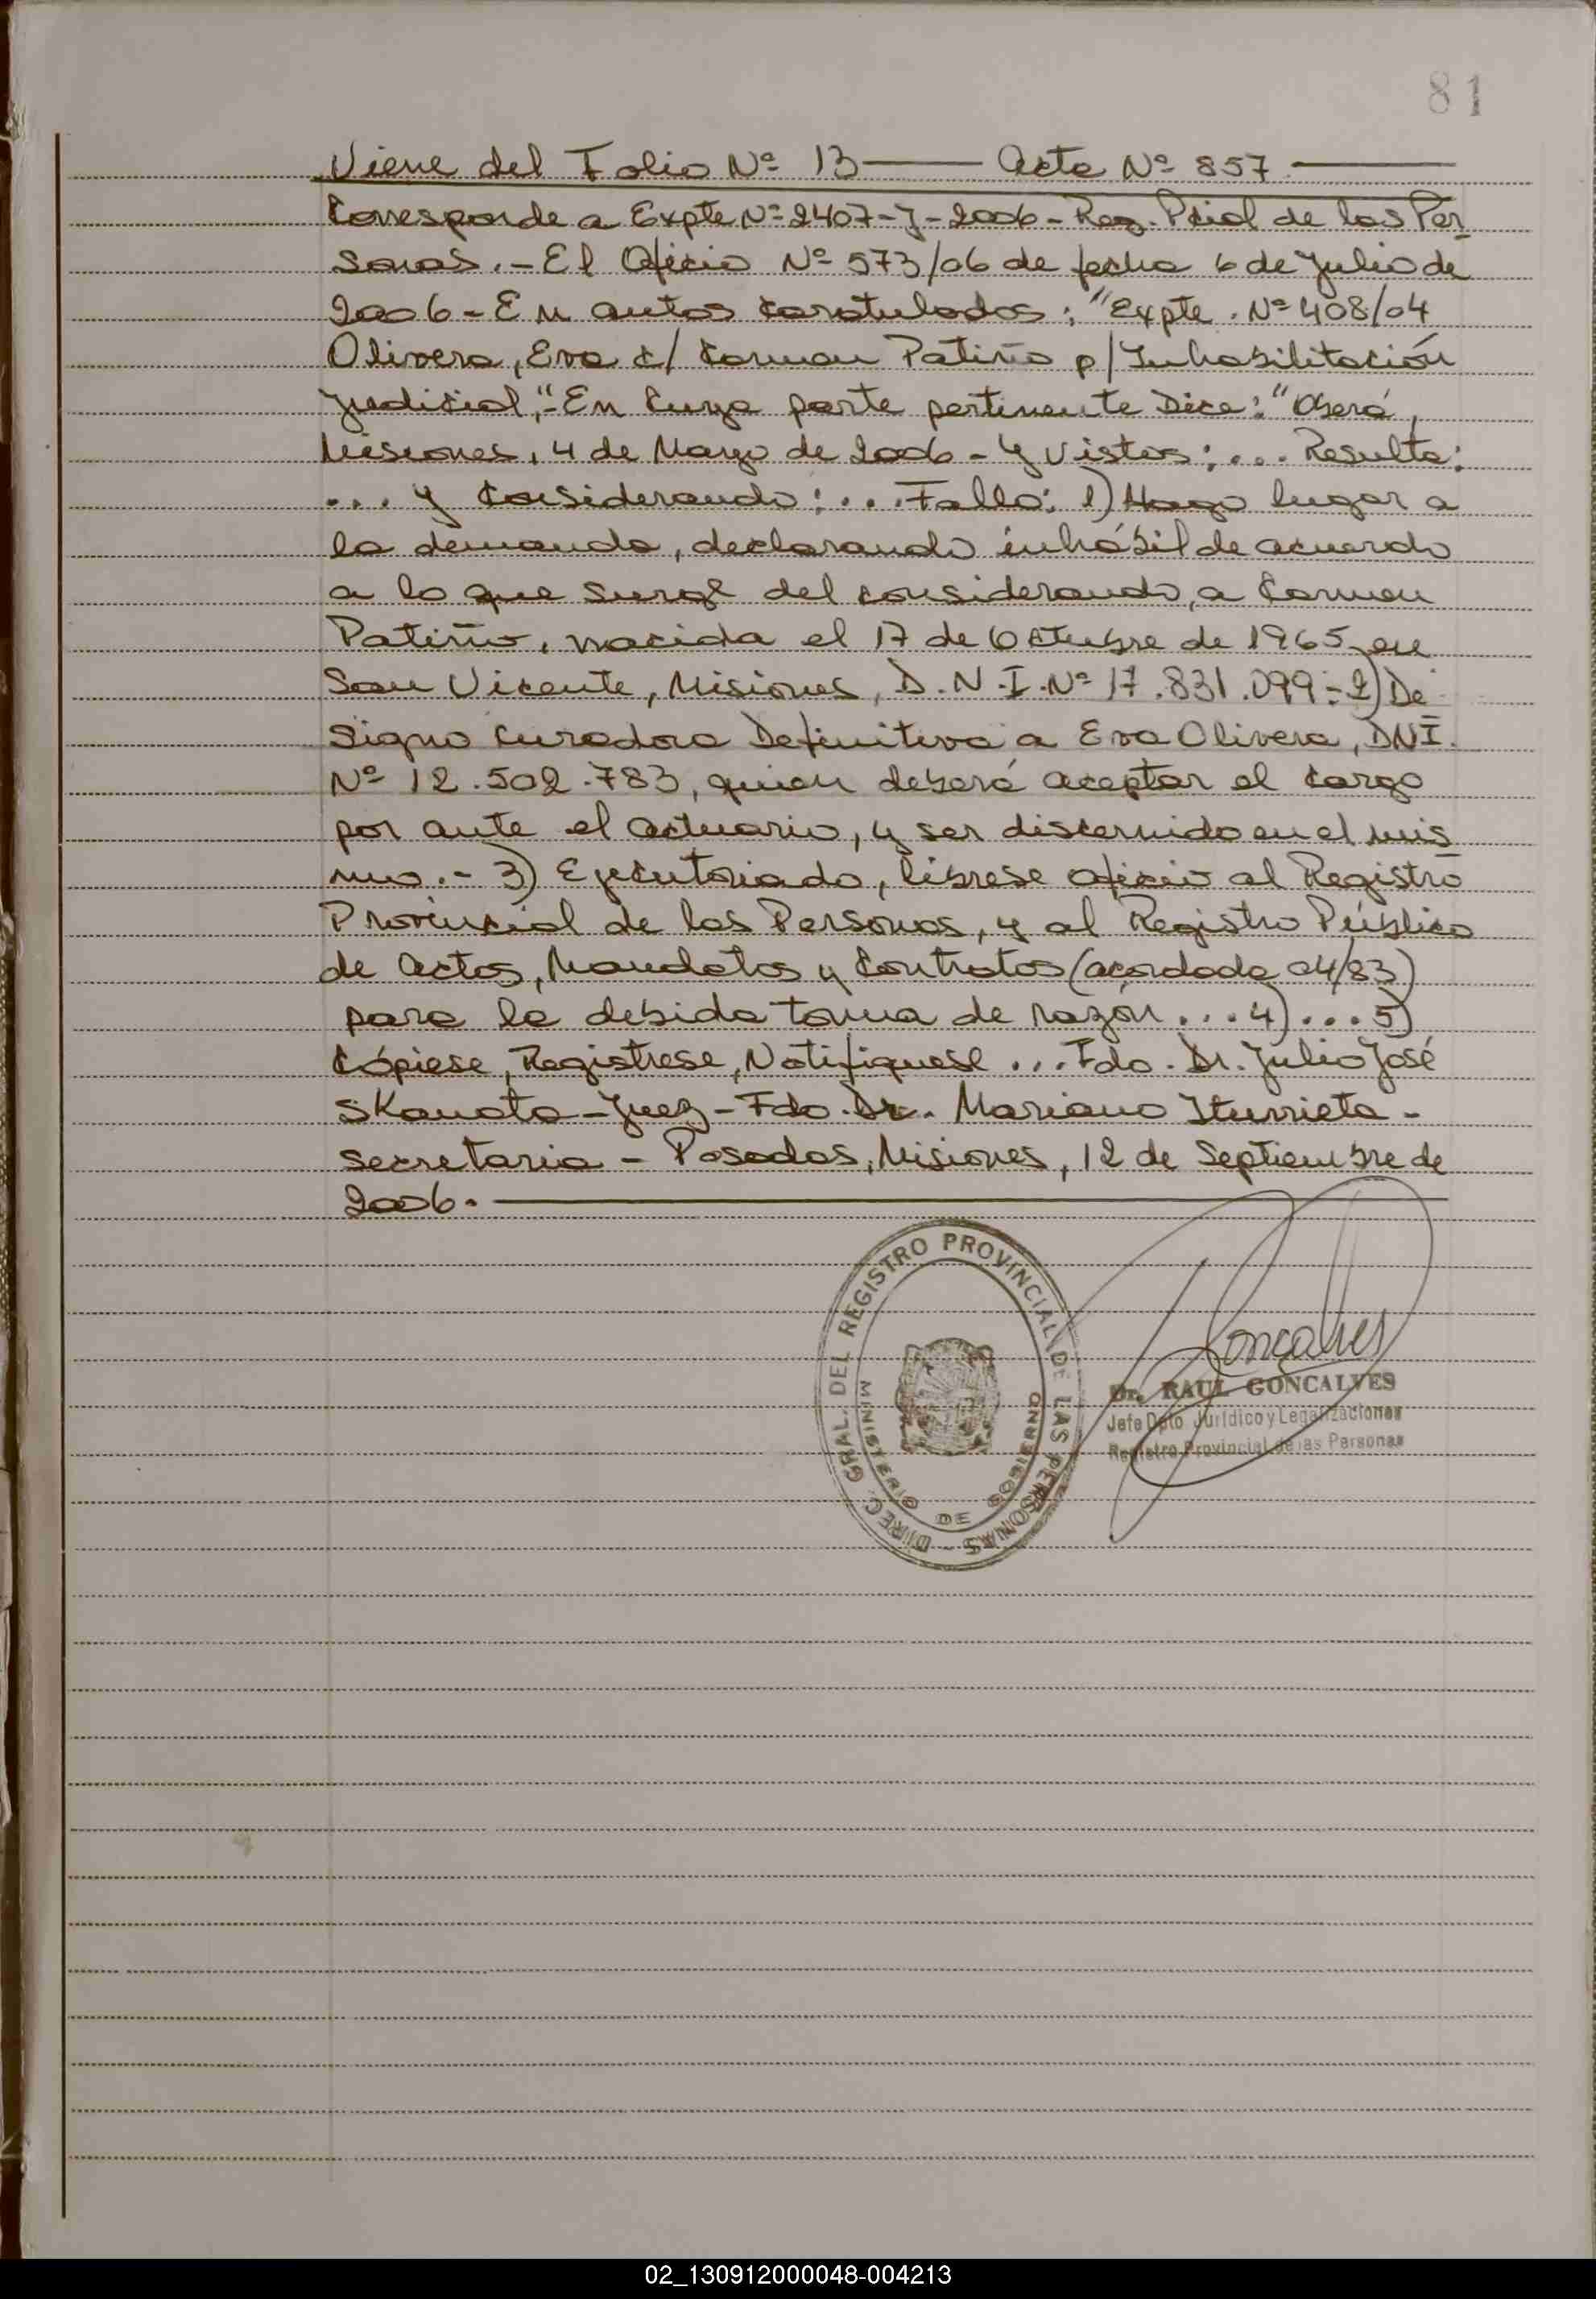 81
Viene del Folio Nº 13 —— Acta Nº 857. ——
Corresponde a Expte Nº 2407-J-2006 - Reg. Pcial de las Per
sonas. - El Oficio Nº 573/06 de fecha 6 de Julio de
2006 - En autos caratulados: "Expte. Nº 408/04
Olivera, Eva c/ Carmen Patiño p/ Inhabilitación
Judicial," - En cuya parte pertinente Dice: "Oberá,
Misiones, 4 de Mayo de 2006 - Y Vistos: ... Resulta:
... y Considerando: ... Fallo: 1) Hago lugar a
la demanda, declarando inhábil de acuerdo
a lo que surge del considerando, a Carmen
Patiño, nacida el 17 de Octubre de 1965 en
San Vicente, Misiones, D.N.I. Nº 17.831.099 - 2) De
signo Curadora Definitiva a Eva Olivera, DNI.
Nº 12.502.783, quien deberá aceptar el cargo
por ante el actuario, y ser discernido en el mis
mo. - 3) Ejecutoriado, líbrese oficio al Registro
Provincial de las Personas, y al Registro Público
de Actos, Mandatos y Contratos (acordada 04/83)
para la debida toma de razón ... 4) ... 5)
Cópiese, Registrese, Notifiquese ... Fdo. Dr. Julio José
Skanata - Juez - Fdo. Dr. Mariano Iturrieta -
secretario - Posadas, Misiones, 12 de Septiembre de
2006. ——
DIREC. GRAL. DEL REGISTRO PROVINCIAL DE LAS PERSONAS -
MINISTERIO DE GOBIERNO
Goncalves
Dr. RAUL GONCALVES
Jefe Dpto Jurídico y Legalizaciones
Registro Provincial de las Personas
02_130912000048-004213